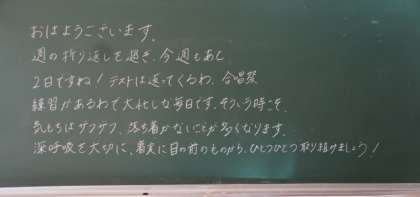 おはようございます。
週の折り返しを過ぎ、今週もあと
2日ですね！テストは返ってくるわ、合唱祭
練習があるわで大忙しな毎日です。そういう時こそ、
気もちはザワザワ、落ち着かないことが多くなります。
深呼吸を大切に、着実に目の前のものから、ひとつひとつ取り組けましょう！